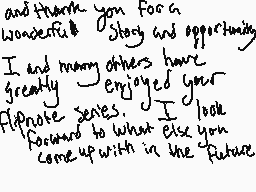 and thank you for a
wonderful story and opportunity
I and many others have
greatly enjoyed your
flipnote series. I look
forward to what else you
come up with in the future